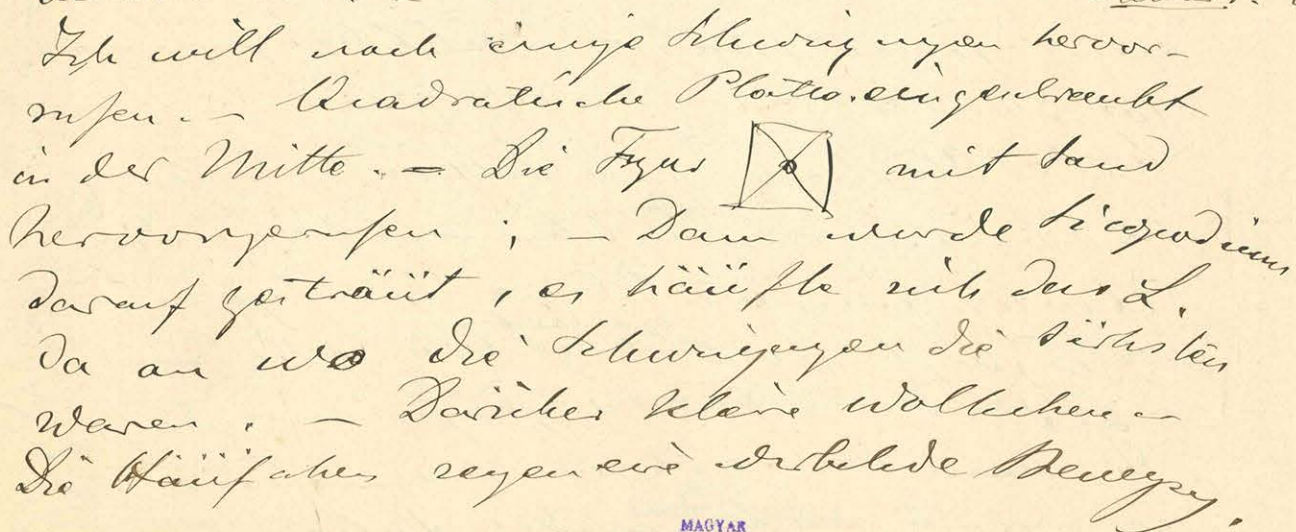 Ich will noch einige Schwingungen hervor-
rufen. – Quadratische Platte eingeschraubt
in der Mitte. – Die Figur mit Sand
hervorgerufen ; – Dann wurde Licopodium
darauf gesträüt, es häüfte sich das L.
da an wo die Schwingungen die stärksten
waren. – Darüber kleine Wölkchen –
Die Häüfchen zeigen eine wirbelnde Bewegung.
MAGYAR